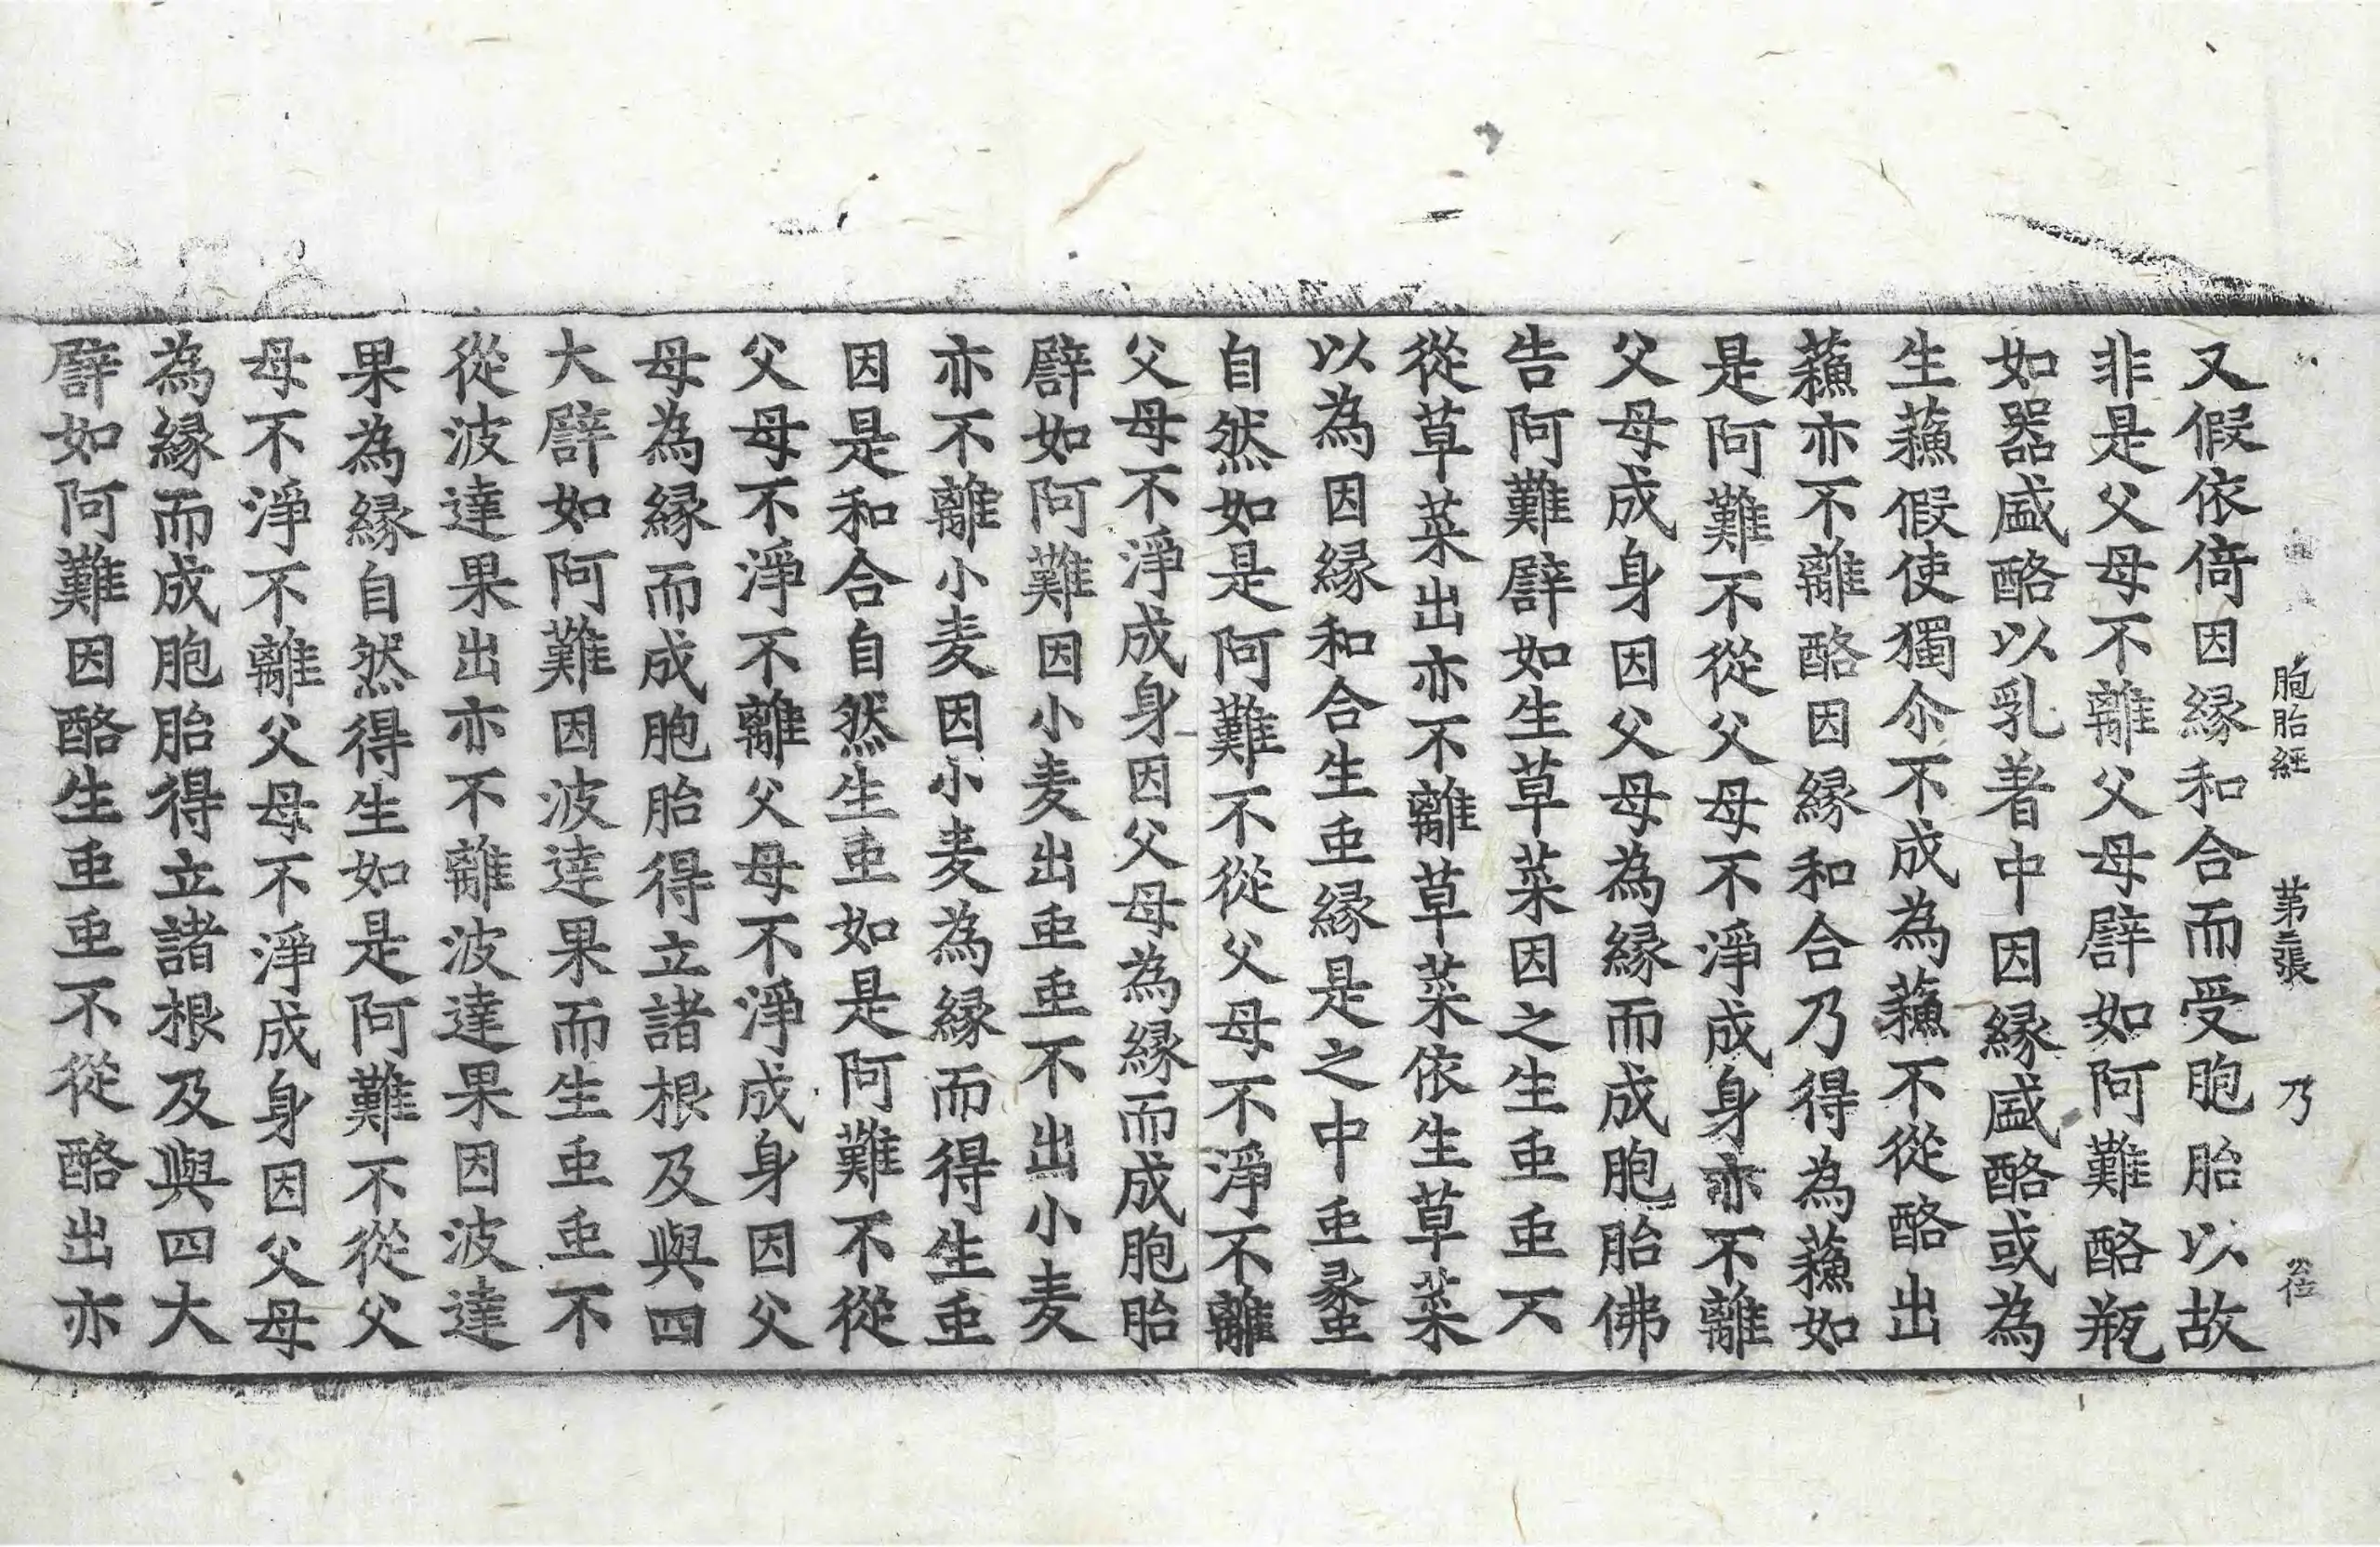 胞胎經 第三張 乃
又假依倚因緣和合而受胞胎以故
非是父母不離父母譬如阿難酪瓶
如器盛酪以乳著中因緣盛酪或為
生蘓假使獨尒不成為蘓不從酪出
蘓亦不離酪因緣和合乃得為蘓如
是阿難不從父母不淨成身亦不離
父母成身因父母為緣而成胞胎佛
告阿難譬如生草菜因之生䖝䖝不
從草菜出亦不離草菜依生草菜
以為因緣和合生䖝緣是之中䖝蟸
自然如是阿難不從父母不淨不離
父母不淨成身因父母為緣而成胞胎
譬如阿難因小麦出䖝䖝不出小麦
亦不離小麦因小麦為緣而得生䖝
因是和合自然生䖝如是阿難不從
父母不淨不離父母不淨成身因父
母為緣而成胞胎得立諸根及與四
大譬如阿難因波達果而生䖝䖝不
從波達果出亦不離波達果因波達
果為緣自然得生如是阿難不從父
母不淨不離父母不淨成身因父母
為緣而成胞胎得立諸根及與四大
譬如阿難因酪生䖝䖝不從酪出亦